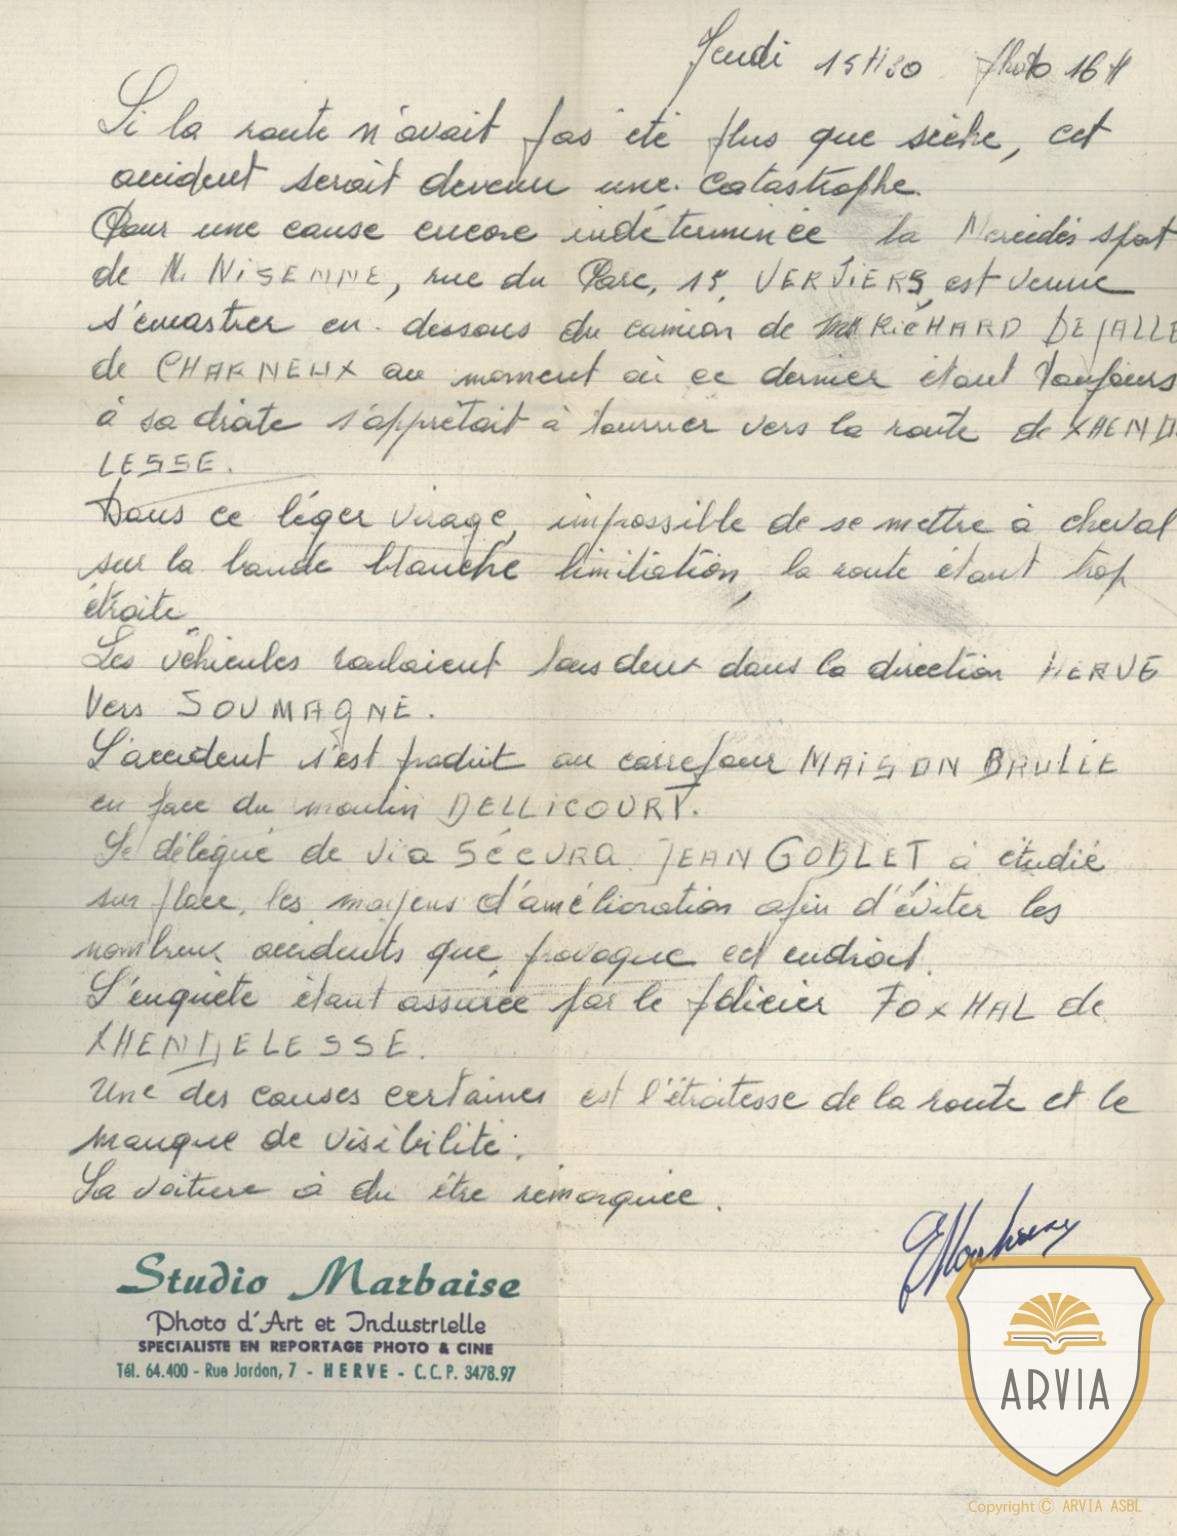 Jeudi 15H30 photo 16H
Si la route n'avait pas été plus que sèche, cet
accident serait devenu une catastrophe.
Pour une cause encore indéterminée la Mercédès sport
de M. NiSENNE, rue du Parc, 15, VERViERS, est venue
s'encastrer en dessous du camion de RiCHARD DEJALLE
de CHARNEUX au moment où ce dernier étant toujours
à sa droite s'apprêtait à tourner vers la route de XHENDE
LESSE.
Dans ce léger virage, impossible de se mettre à cheval
sur la bande blanche limitiation, la route étant trop
étroite
Les véhicules roulaient tous deux dans la direction HERVE
vers SOUMAGNE.
L'accident s'est produit au carrefour MAiSON BRULÉE
en face du moulin DELLiCOURT.
Le délégué de via SÉCURA JEAN GOBLET à étudié
sur place, les moyens d'amélioration afin d'éviter les
nombreux accidents que provoque cet endroit.
L'enquète étant assurée par le policier FOXHAL de
XHENDELESSE.
Une des causes certaines est l'étroitesse de la route et le
manque de visibilité.
La voiture à du être remorquée.
Studio Marbaise
Photo d'Art et Industrielle
SPECIALISTE EN REPORTAGE PHOTO & CINE
Tél. 64.400 - Rue Jardon, 7 - HERVE - C.C.P. 3478.97
ARVIA
Copyright © ARVIA ASBL